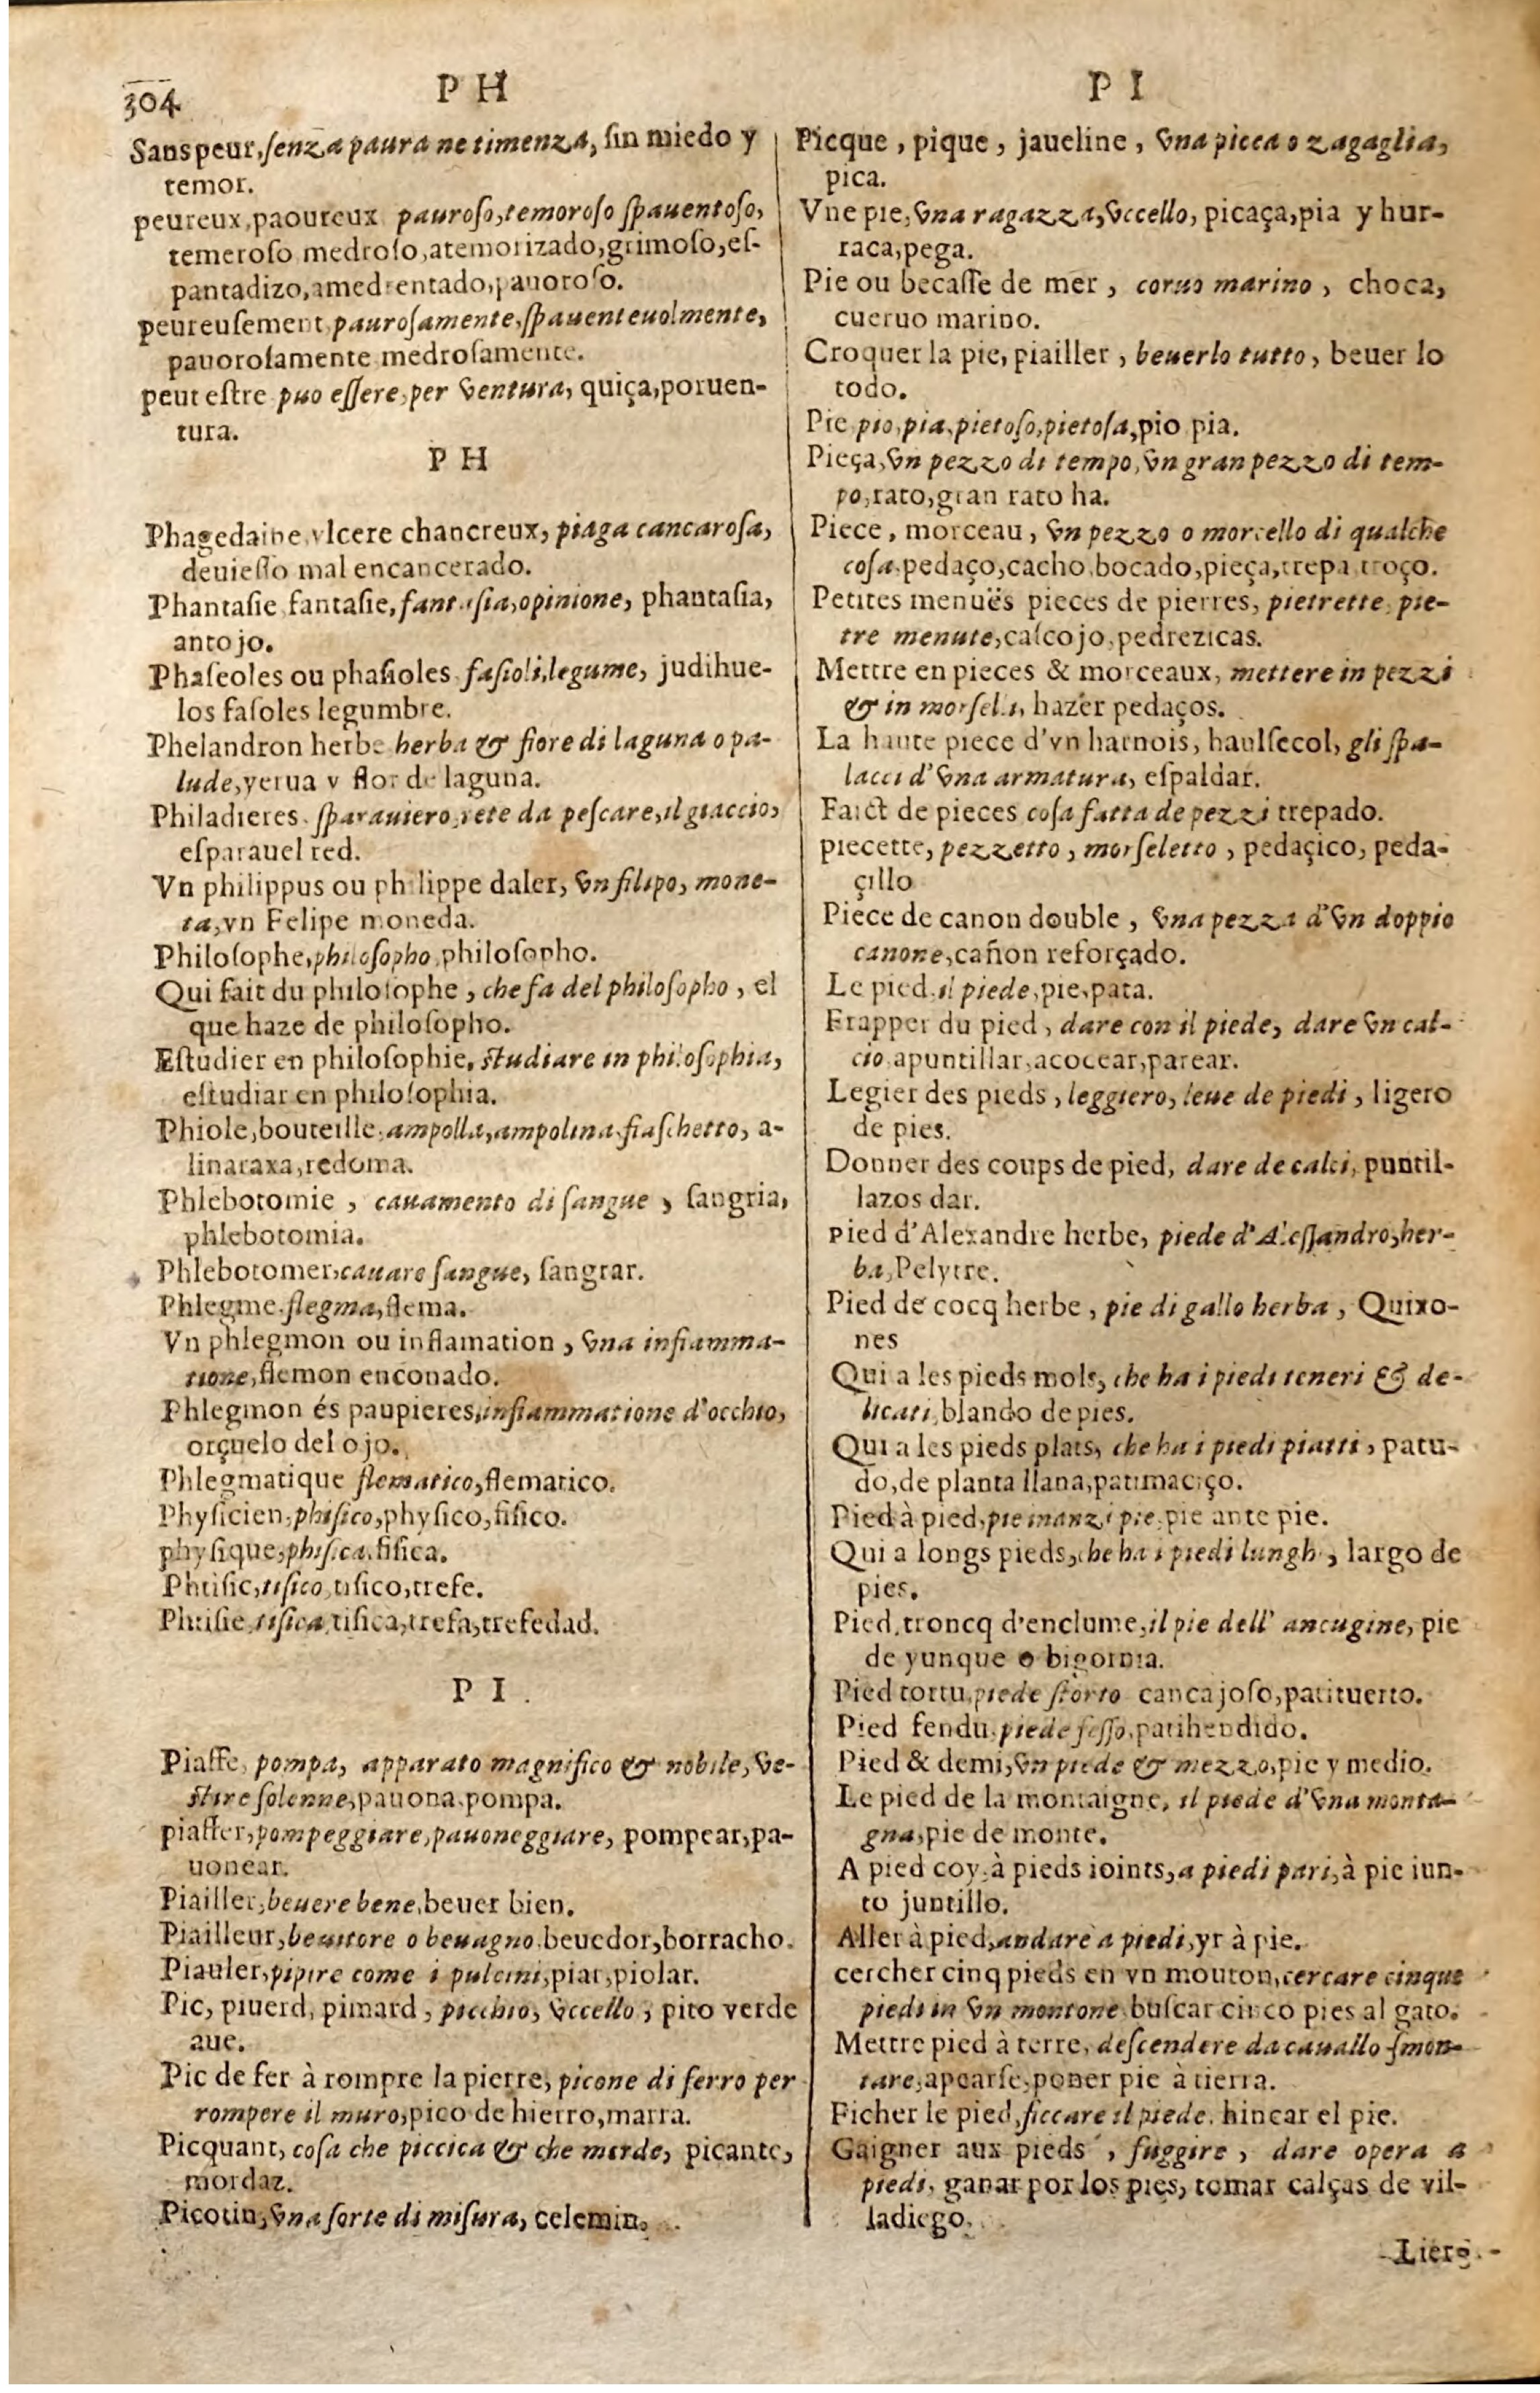 304
P H
Sans peur, ſenza paura ne timenza, ſin miedo y
temor.
peureux, paoureux pauroſo, temoroſo ſpauentoſo,
temeroſo medroſo, atemorizado, grimoſo, eſ-
pantadizo, amedrentado, pauoroſo.
peureuſement pauroſamente, ſpauenteuolmente,
pauoroſamente medroſamente.
peut eſtre puo eſſere, per ventura, quiça, poruen-
tura.
P H
Phagedaine vlcere chancreux, piaga cancaroſa,
deuieſſo mal encancerado.
Phantaſie fantaſie, fantaſia, opinione, phantaſia,
antojo.
Phaſeoles ou phaſioles faſioli, legume, judihue-
los faſoles legumbre.
Phelandron herbe herba & fiore di laguna o pa-
lude, yerua y flor de laguna.
Philadieres ſparauiero, rete da peſcare, il giaccio,
eſparauel red.
Vn philippus ou philippe daler, vn filipo, mone-
ta, vn Felipe moneda.
Philoſophe, philoſopho, philoſopho.
Qui fait du philoſophe, che fa del philoſopho, el
que haze de philoſopho.
Eſtudier en philoſophie, ſtudiare in philoſophia,
eſtudiar en philoſophia.
Phiole, bouteille, ampolla, ampolina, fiaſchetto, a-
linaraxa, redoma.
Phlebotomie, cauamento di ſangue, ſangria,
phlebotomia.
Phlebotomer, cauare ſangue, ſangrar.
Phlegme, flegma, flema.
Vn phlegmon ou inflamation, vna infiamma-
tione, flemon enconado.
Phlegmon és paupieres, infiammatione d'occhio,
orçuelo del ojo.
Phlegmatique flematico, flematico.
Phyſicien, phiſico, phyſico, fiſico.
phyſique, phiſica, fiſica.
Phtiſic, tiſico, tiſico, trefe.
Phtiſie, tiſica, tiſica, trefa, trefedad.
P I.
Piaffe, pompa, apparato magnifico & nobile, ve-
ſtire ſolenne, pauona, pompa.
piaffer, pompeggiare, pauoneggiare, pompear, pa-
uonear.
Piailler, beuere bene, beuer bien.
Piailleur, beuitore o beuagno, beuedor, borracho.
Piauler, pipire come i pulcini, piar, piolar.
Pic, piuerd, pimard, picchio, vccello, pito verde
aue.
Pic de fer à rompre la pierre, picone di ferro per
rompere il muro, pico de hierro, marra.
Picquant, coſa che piccica & che morde, picante,
mordaz.
Picotin, vna ſorte di miſura, celemin.
P I
Picque, pique, jaueline, vna picca o zagaglia,
pica.
Vne pie, vna ragazza, vccello, picaça, pia y hur-
raca, pega.
Pie ou becaſſe de mer, coruo marino, choca,
cueruo marino.
Croquer la pie, piailler, beuerlo tutto, beuer lo
todo.
Pie pio, pia, pietoſo, pietoſa, pio pia.
Pieça, vn pezzo di tempo, vn gran pezzo di tem-
po, rato, gran rato ha.
Piece, morceau, vn pezzo o morcello di qualche
coſa, pedaço, cacho, bocado, pieça, trepa troço.
Petites menuës pieces de pierres, pietrette, pie-
tre menute, caſcojo, pedrezicas.
Mettre en pieces & morceaux, mettere in pezzi
& in morſeli, hazer pedaços.
La haute piece d'vn harnois, haulſecol, gli ſpa-
lacci d'vna armatura, eſpaldar.
Faict de pieces coſa fatta de pezzi trepado.
piecette, pezzetto, morſeletto, pedaçico, peda-
çillo
Piece de canon double, vna pezza d'vn doppio
canone, cañon reforçado.
Le pied, il piede, pie, pata.
Frapper du pied, dare con il piede, dare vn cal-
cio apuntillar, acocear, patear.
Legier des pieds, leggiero, leue de piedi, ligero
de pies.
Donner des coups de pied, dare de calci, puntil-
lazos dar.
Pied d'Alexandre herbe, piede d'Aleſſandro, her-
ba, Pelytre.
Pied de cocq herbe, pie di gallo herba, Quixo-
nes
Qui a les pieds mols, che ha i piedi teneri & de-
licati, blando de pies.
Qui a les pieds plats, che ha i piedi piatti, patu-
do, de planta llana, patimaciço.
Pied à pied, pie inanzi pie, pie ante pie.
Qui a longs pieds, che ha i piedi lunghi, largo de
pies.
Pied, troncq d'enclume, il pie dell' ancugine, pie
de yunque o bigornia.
Pied tortu, piede ſtorto cancajoſo, patituerto.
Pied fendu, piede feſſo, patihendido.
Pied & demi, vn piede & mezzo, pie y medio.
Le pied de la montaigne, il piede d'vna monta-
gna, pie de monte.
A pied coy, à pieds ioints, a piedi pari, à pie iun-
to juntillo.
Aller à pied, andare a piedi, yr à pie.
cercher cinq pieds en vn mouton, cercare cinque
piedi in vn montone buſcar cinco pies al gato.
Mettre pied à terre, deſcendere da cauallo ſmon-
tare, apearſe, poner pie à tierra.
Ficher le pied, ficcare il piede, hincar el pie.
Gaigner aux pieds, fuggire, dare opera a
piedi, ganar por los pies, tomar calças de vil-
ladiego.